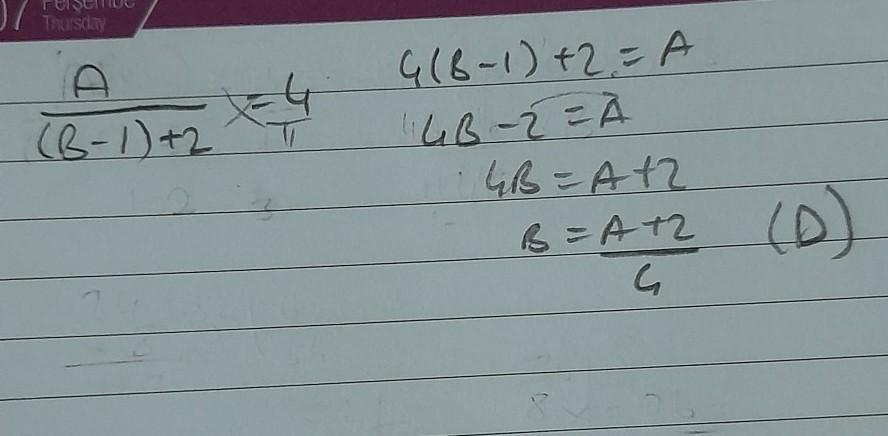 07 Perşembe
Thursday
A/(B-1)+2 = 4/1
4(B-1)+2 = A
4B-2 = A
4B = A+2
B = A+2/4 (D)